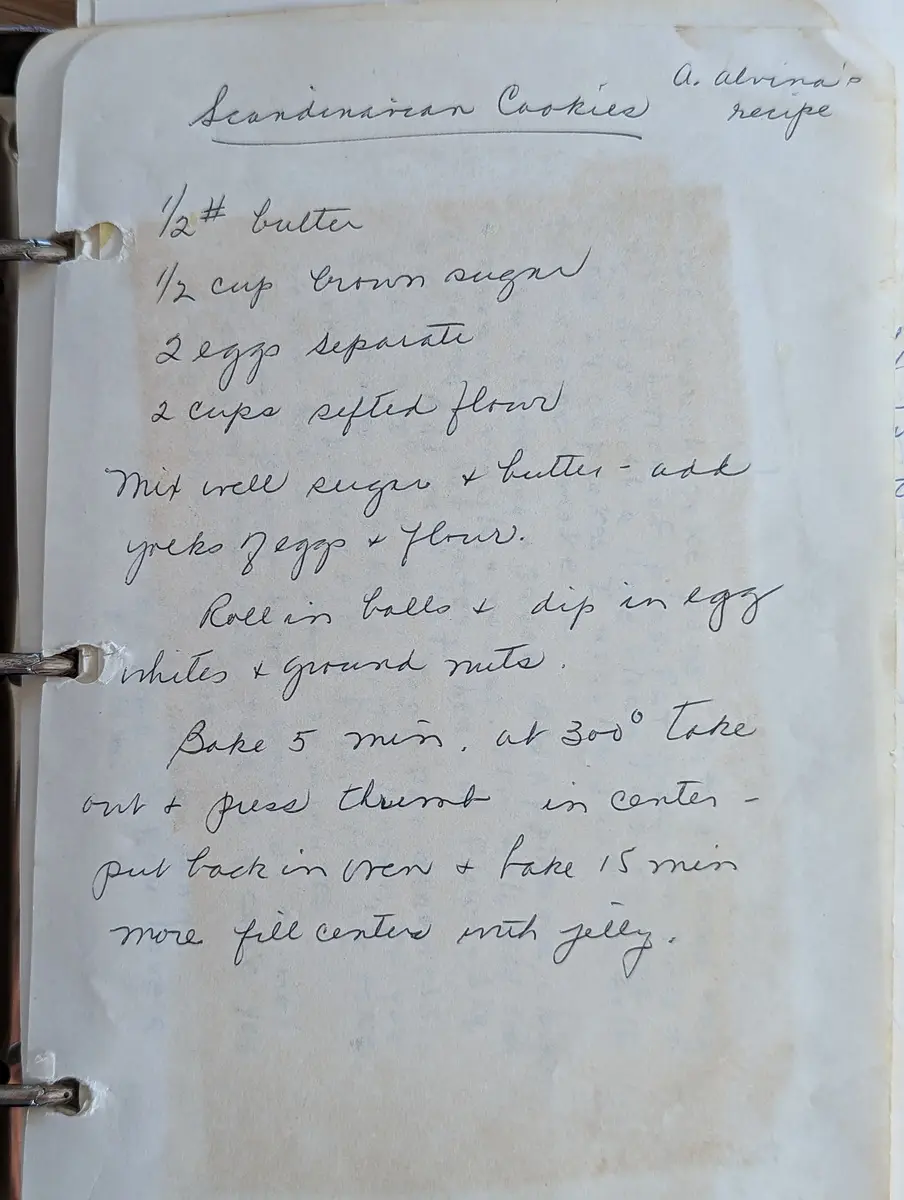 Scandinavian Cookies
A. Alvina's
recipe
1/2 # butter
1/2 cup brown sugar
2 eggs separate
2 cups sifted flour
Mix well sugar & butter - add
yolks of eggs & flour.
Roll in balls & dip in egg
whites & ground nuts.
Bake 5 min. at 300° Take
out & press thumb in center -
put back in oven & bake 15 min
more fill centers with jelly.